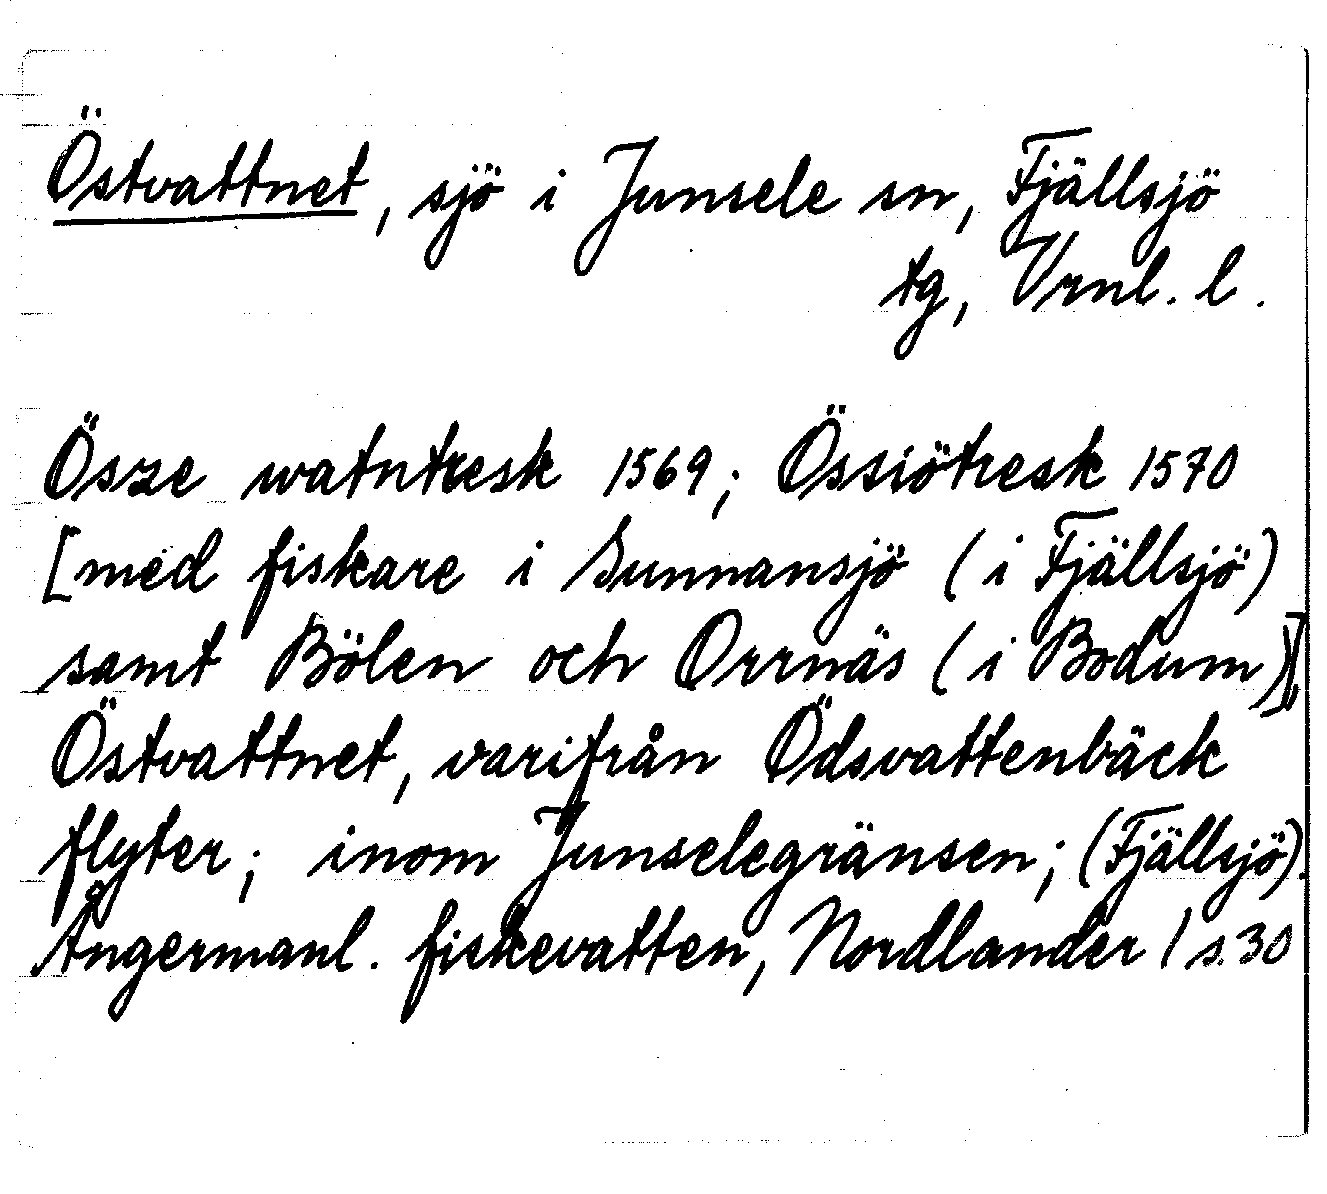 Östvattnet, sjö i Junsele sn, Fjällsjö
tg, Vrnl. l.
Ösze watntresk 1569; Össiötresk 1570
[med fiskare i Sunnansjö (i Fjällsjö)
samt Bölen och Orrnäs (i Bodum)],
Östvattnet, varifrån Ödsvattenbäck
flyter; inom Junselegränsen; (Fjällsjö).
Ångermanl. fiskevatten, Nordlander 1 s. 30